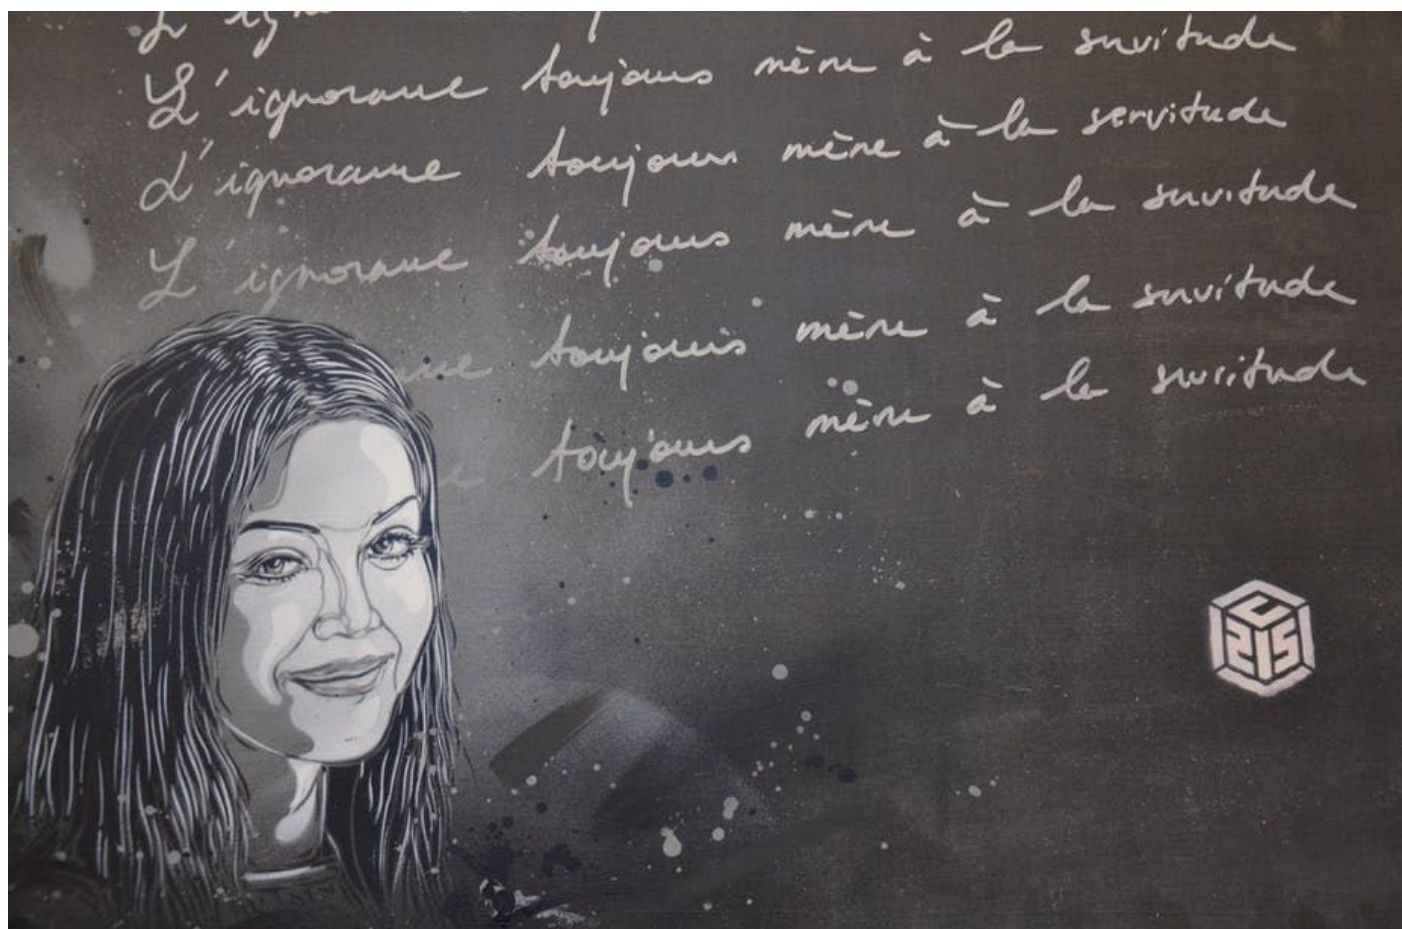 L'ignorance toujours mène à la servitude
L'ignorance toujours mène à la servitude
L'ignorance toujours mène à la servitude
toujours mène à la servitude
toujours mène à la servitude
C215